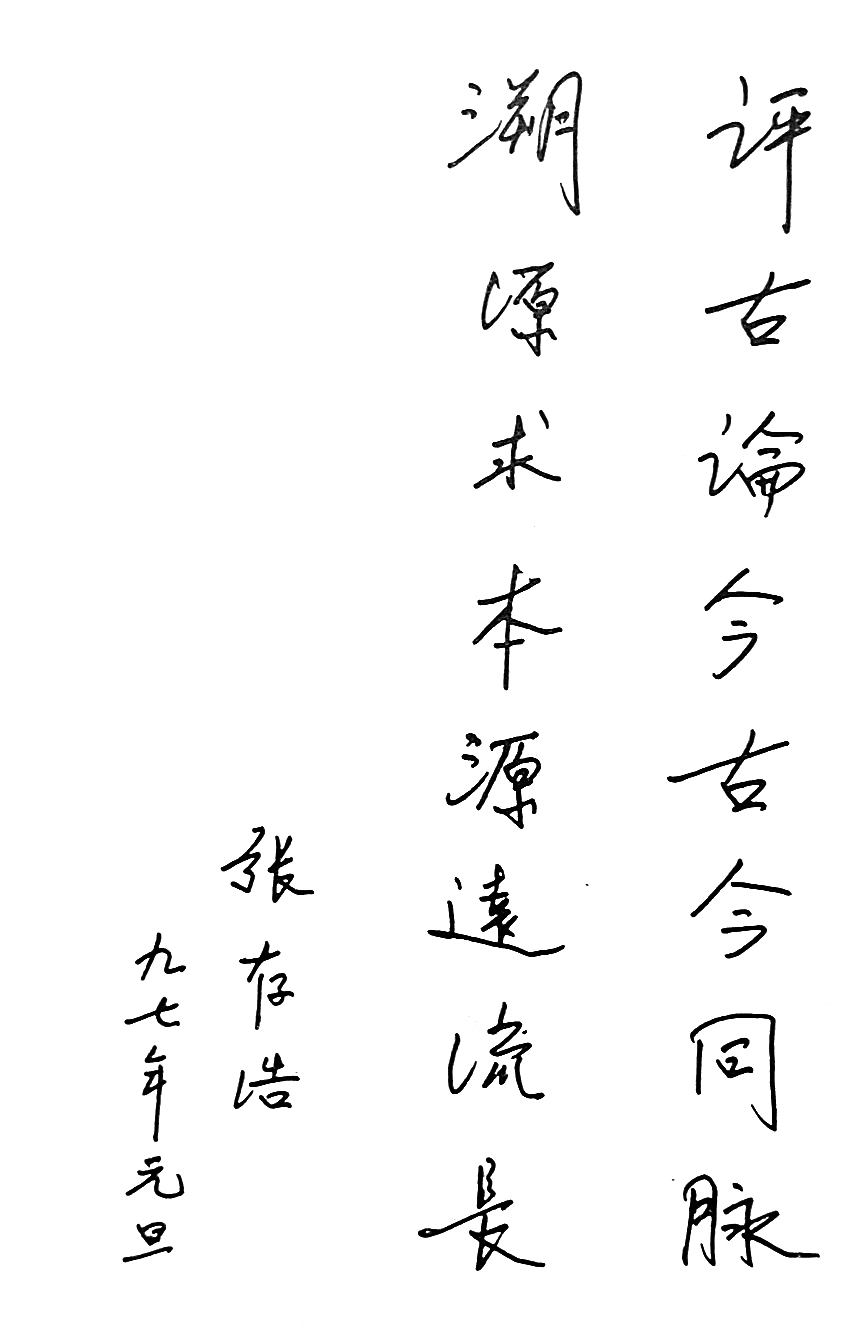 評古論今古今同脉
溯源求本源遠流長
張存浩
九七年元旦